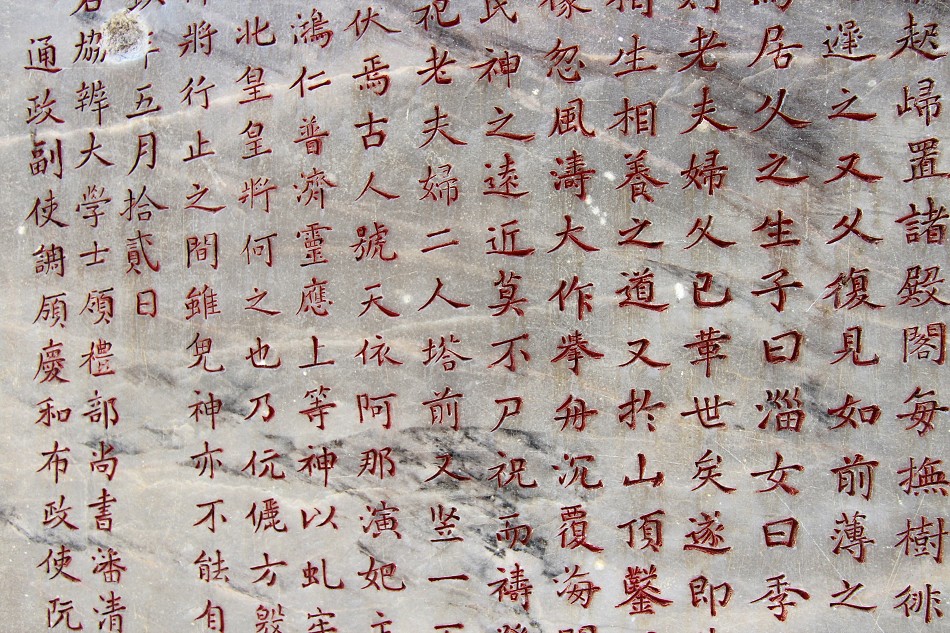 起歸置諸殿閣每撫樹徘
遲之又久復見如前薄之
居久之生子曰淄女曰季
老夫婦久已華世矣遂即
生相養之道又於山頂鑿
忽風濤大作拳舟沉覆海
民神之遠近莫不尸祝而禱
祀老夫婦二人塔前又竖一
伏焉古人號天依阿那演妃主
鴻仁普濟靈應上等神以虬
北皇皇將何之也乃伉儷方
將行止之間雖鬼神亦不能自
年五月拾貳日
協辨大学士領禮部尚書潘清
通政副使調領慶和布政使阮